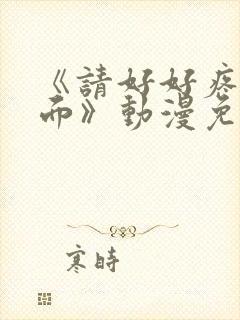 《請好好疼
而》動漫免
寒時